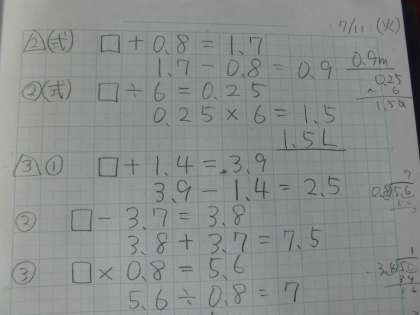 7/11 (火)
2 (式) □ + 0.8 = 1.7
1.7 - 0.8 = 0.9
0.9m
② (式) □ ÷ 6 = 0.25
0.25 × 6 = 1.5
1.5L
0.25
× 6
1.50
3 ① □ + 1.4 = 3.9
3.9 - 1.4 = 2.5
② □ - 3.7 = 3.8
3.8 + 3.7 = 7.5
③ □ × 0.8 = 5.6
5.6 ÷ 0.8 = 7
7
0.8 5.6